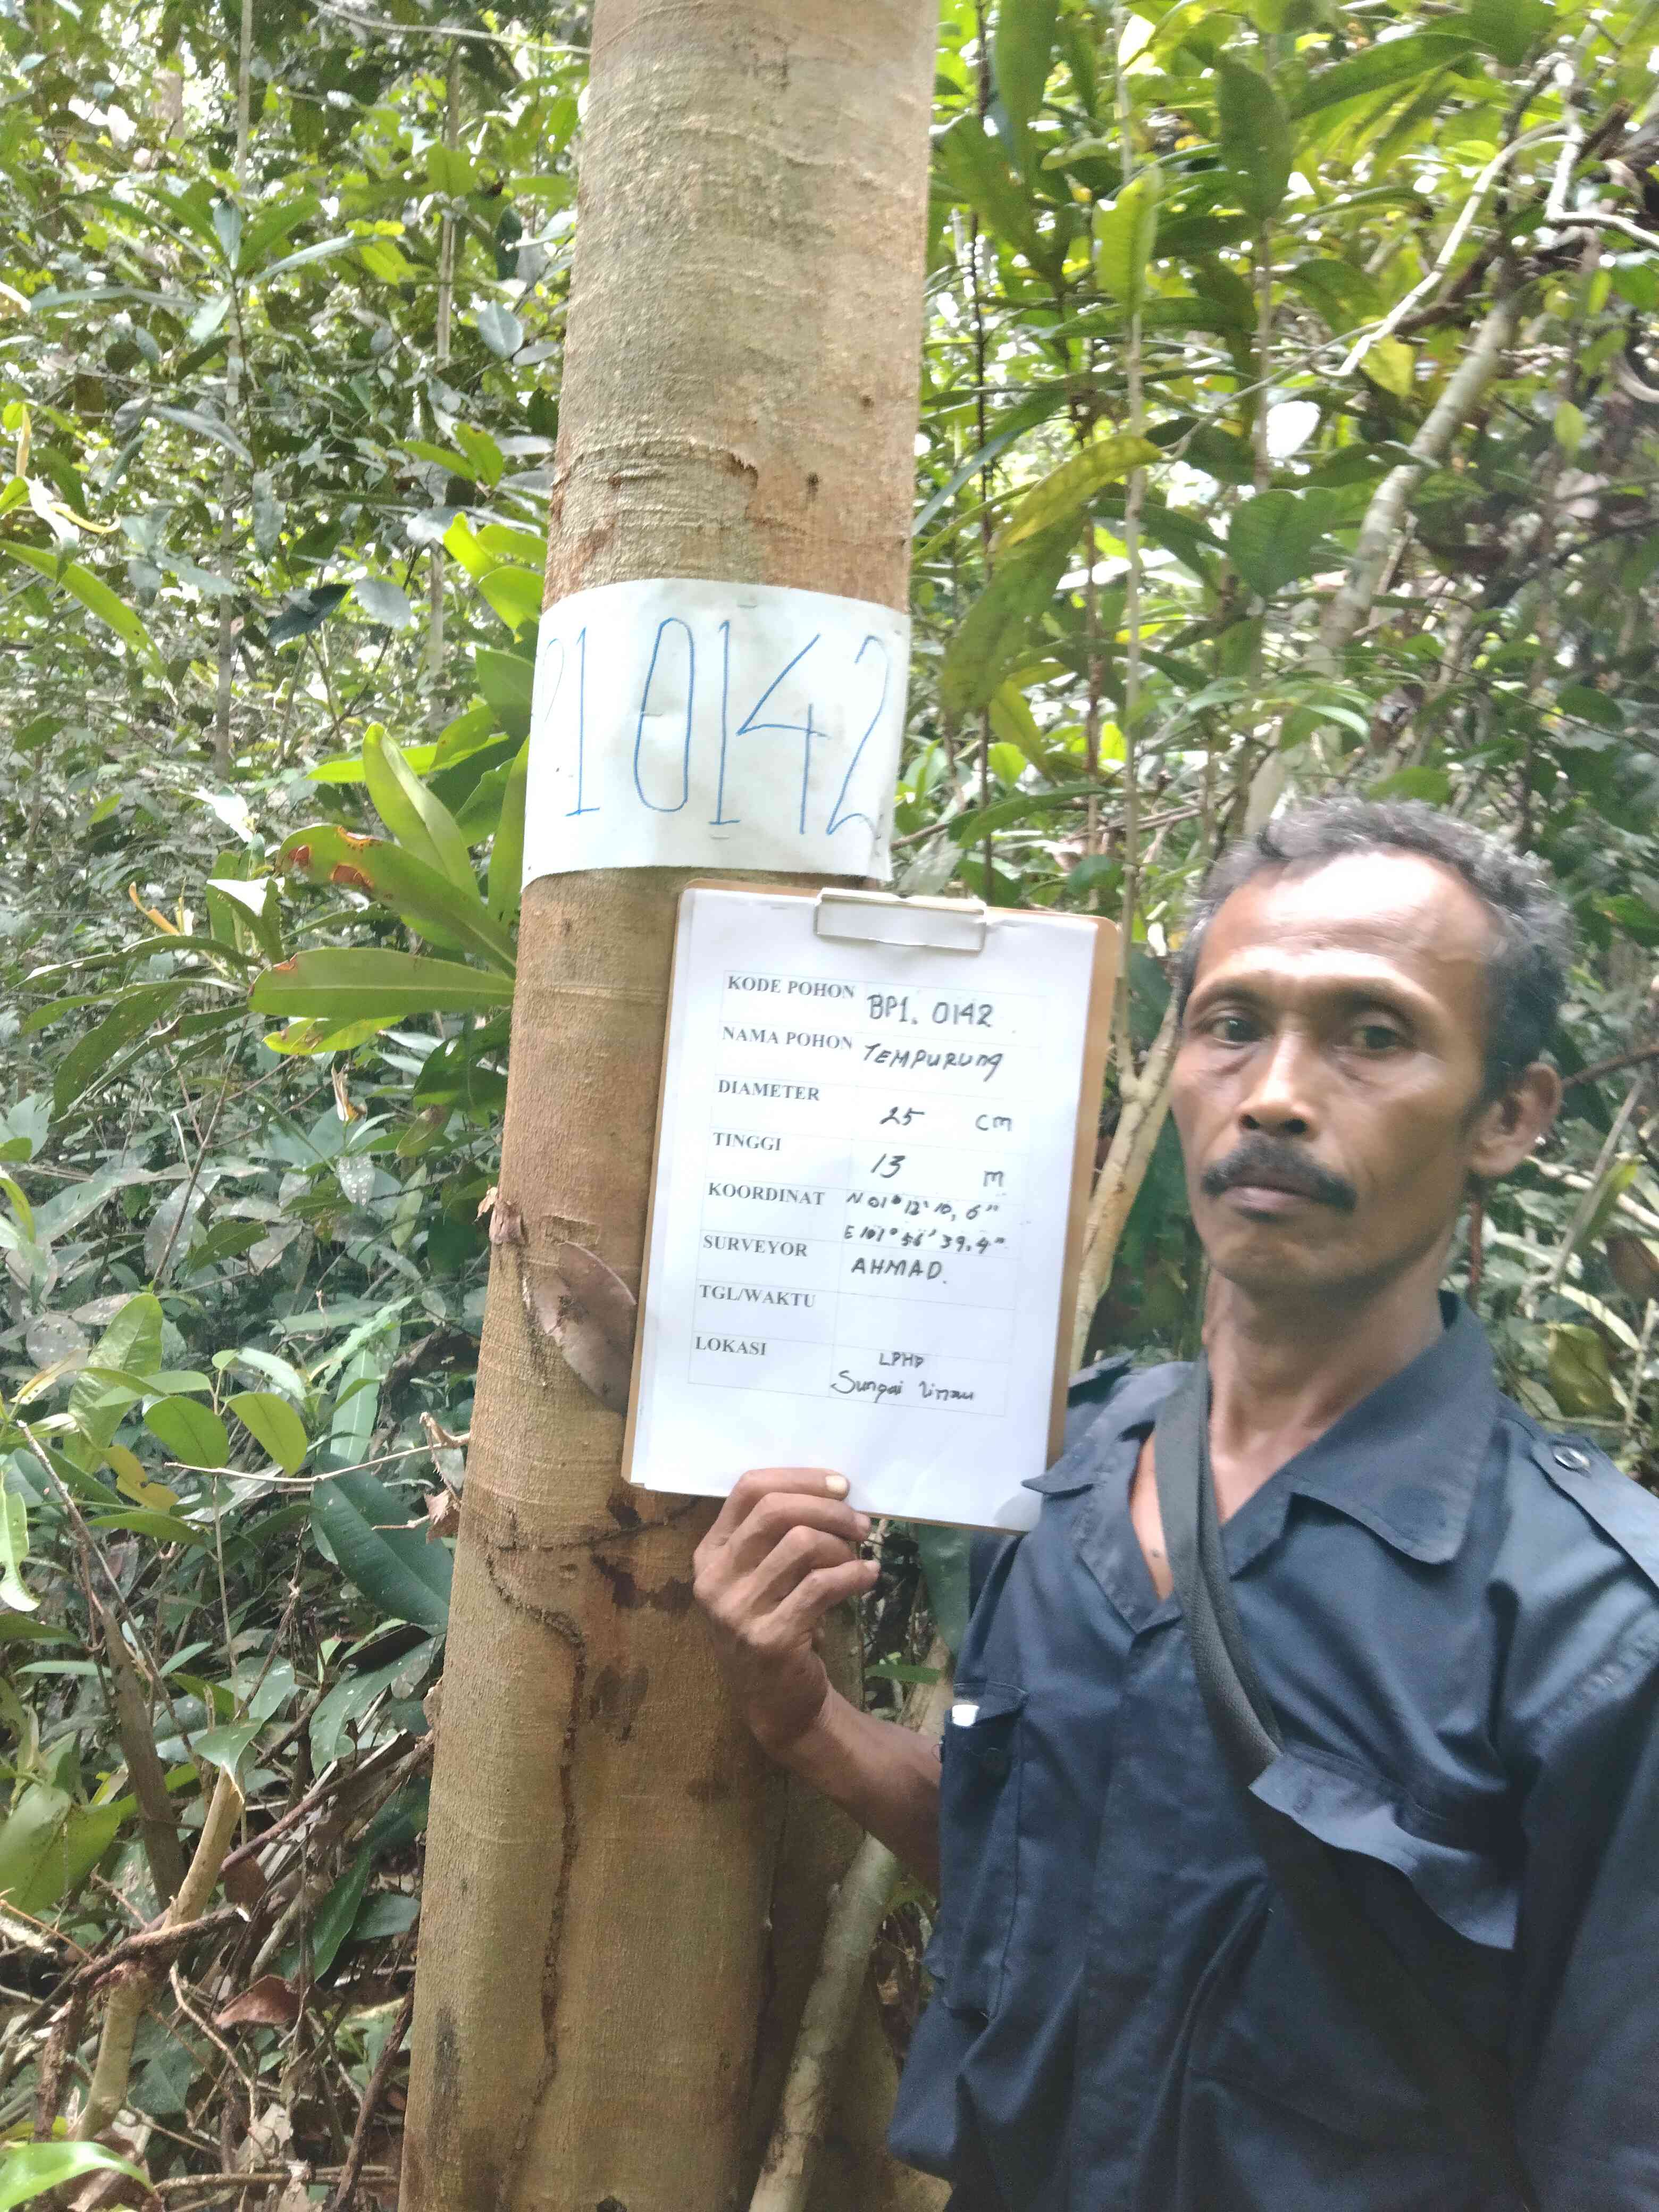 P1 0142
KODE POHON BP1. 0142
NAMA POHON TEMPURUNG
DIAMETER 25 cm
TINGGI 13 m
KOORDINAT N 01° 12' 10, 6"
E 101° 56' 39.4"
SURVEYOR AHMAD.
TGL/WAKTU
LOKASI LPHD
Sungai Limau